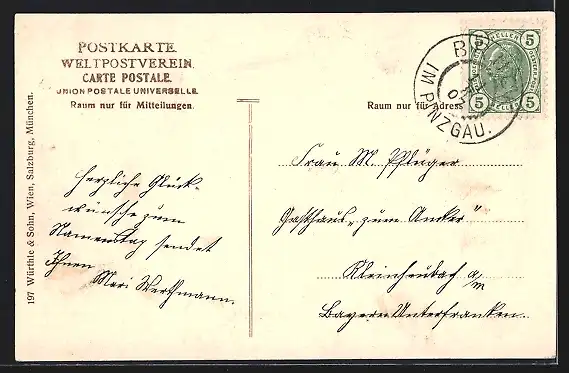 POSTKARTE.
WELTPOSTVEREIN.
CARTE POSTALE.
UNION POSTALE UNIVERSELLE.
Raum nur für Mitteilungen.
Raum nur für Adresse
5 HELLER 5
5 HELLER 5
IM PINZGAU.
197 Würthle & Sohn, Wien, Salzburg, München.
Herzliche Glück-
wünsche zum
Namenstag sendet
Ihnen
Meri Werthmann.
Frau M. Pflüger
Gasthaus „zum Anker"
Kleinheubach a/m
Bayern Unterfranken.